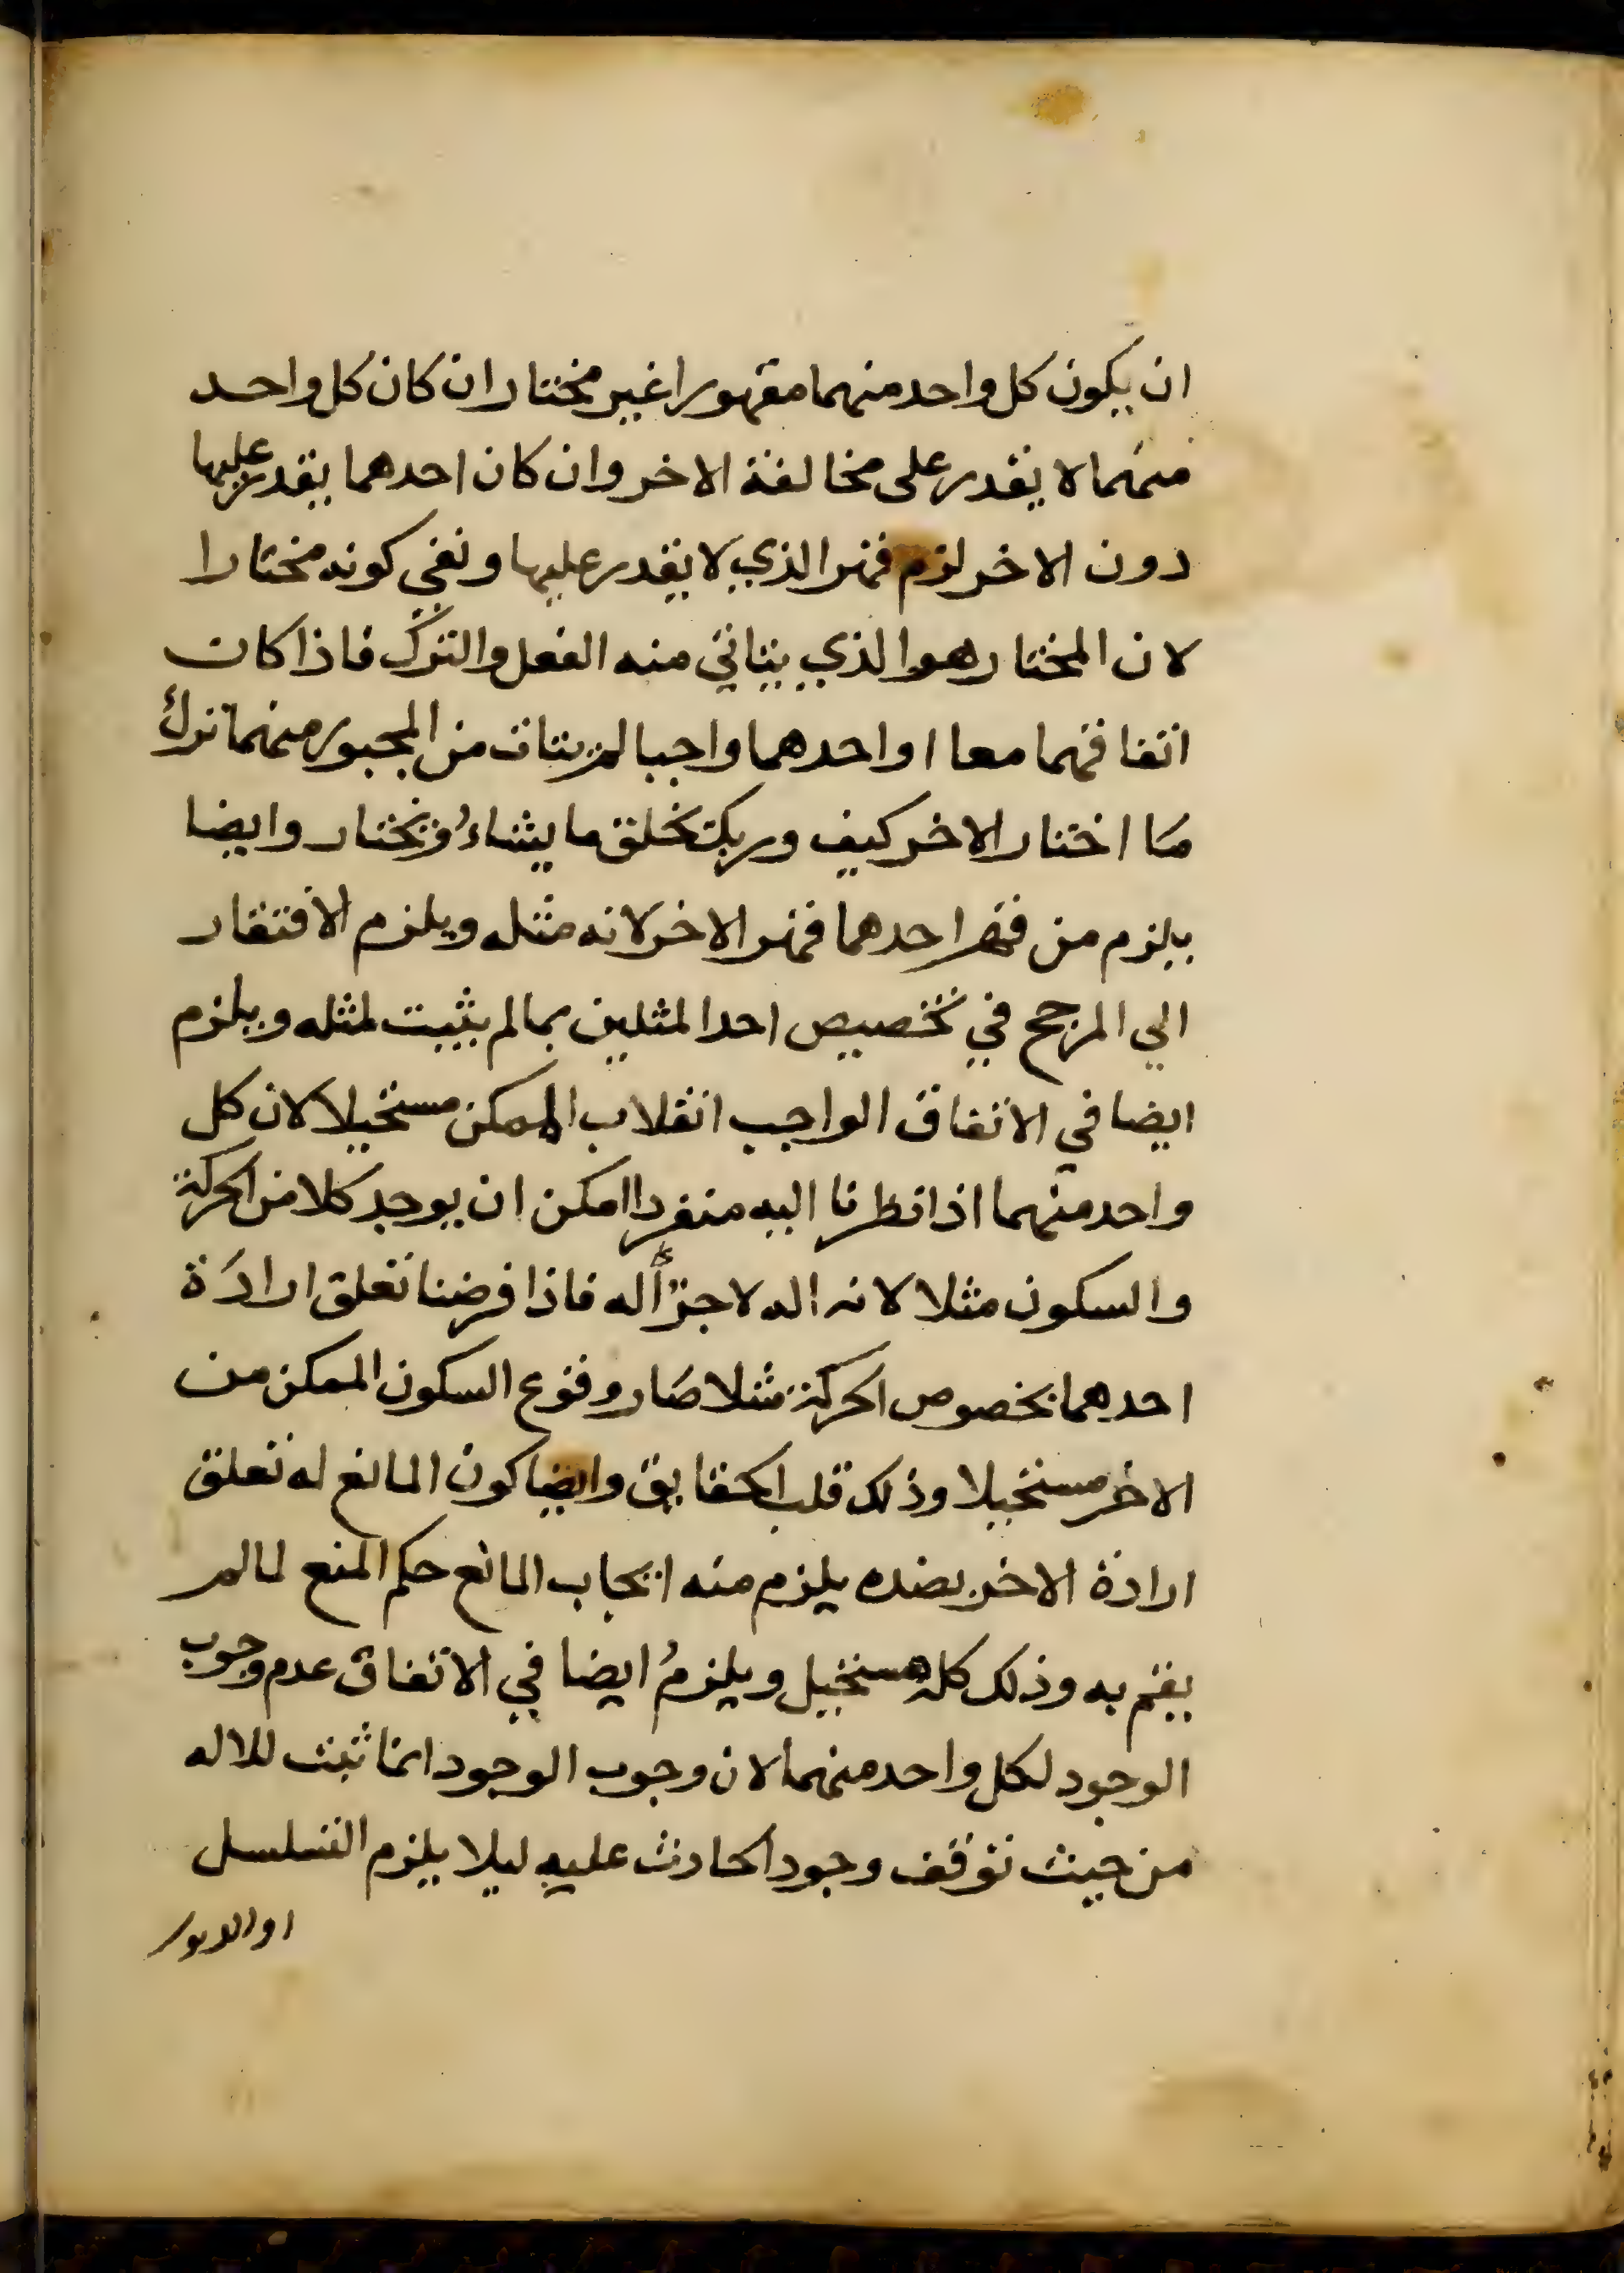 ان يكون كل واحد منهما مقهورا غير مختار ان كان كل واحد
منهما لا يقدر على مخالفة الاخر وان كان احدهما يقدر عليها
دون الاخر لزم قهر الذي لا يقدر عليها ونفي كونه مختارا
لان المختار هو الذي يتاتي منه الفعل والترك فاذا كان
اتفاقهما معا او احدهما واجبا لم يتات من المجبور منهما ترك
ما اختار الاخر كيف وربك يخلق ما يشاءُ ويختار وايضا
يلزم من قهر احدهما قهر الاخر لانه مثله ويلزم الافتقار
الي المرجح في تخصيص احد المثلين بما لم يثبت لمثله ويلزم
ايضا في الاتفاق الواجب انقلاب الممكن مستحيلا لان كل
واحد منهما اذا نظرنا اليه منفردا امكن ان يوجد كلا من الحركة
والسكون مثلا لانه اله لا جزأ له فاذا فرضنا تعلق ارادَة
احدهما بخصوص الحركة مثلا صَار وقوع السكون الممكن من
الاخر مستحيلا وذلك قلب الحقايق وايضا كون المانع له تعلق
ارادة الاخر بضده يلزم منه ايجاب المانع حكم المنع لما لم
يقم به وذلك كله مستحيل ويلزمُ ايضا في الاتفاق عدم وجوب
الوجود لكل واحد منهما لان وجوب الوجود انما ثبت للاله
من حيث توقف وجود الحادث عليه ليلا يلزم التسلسل
او الدور